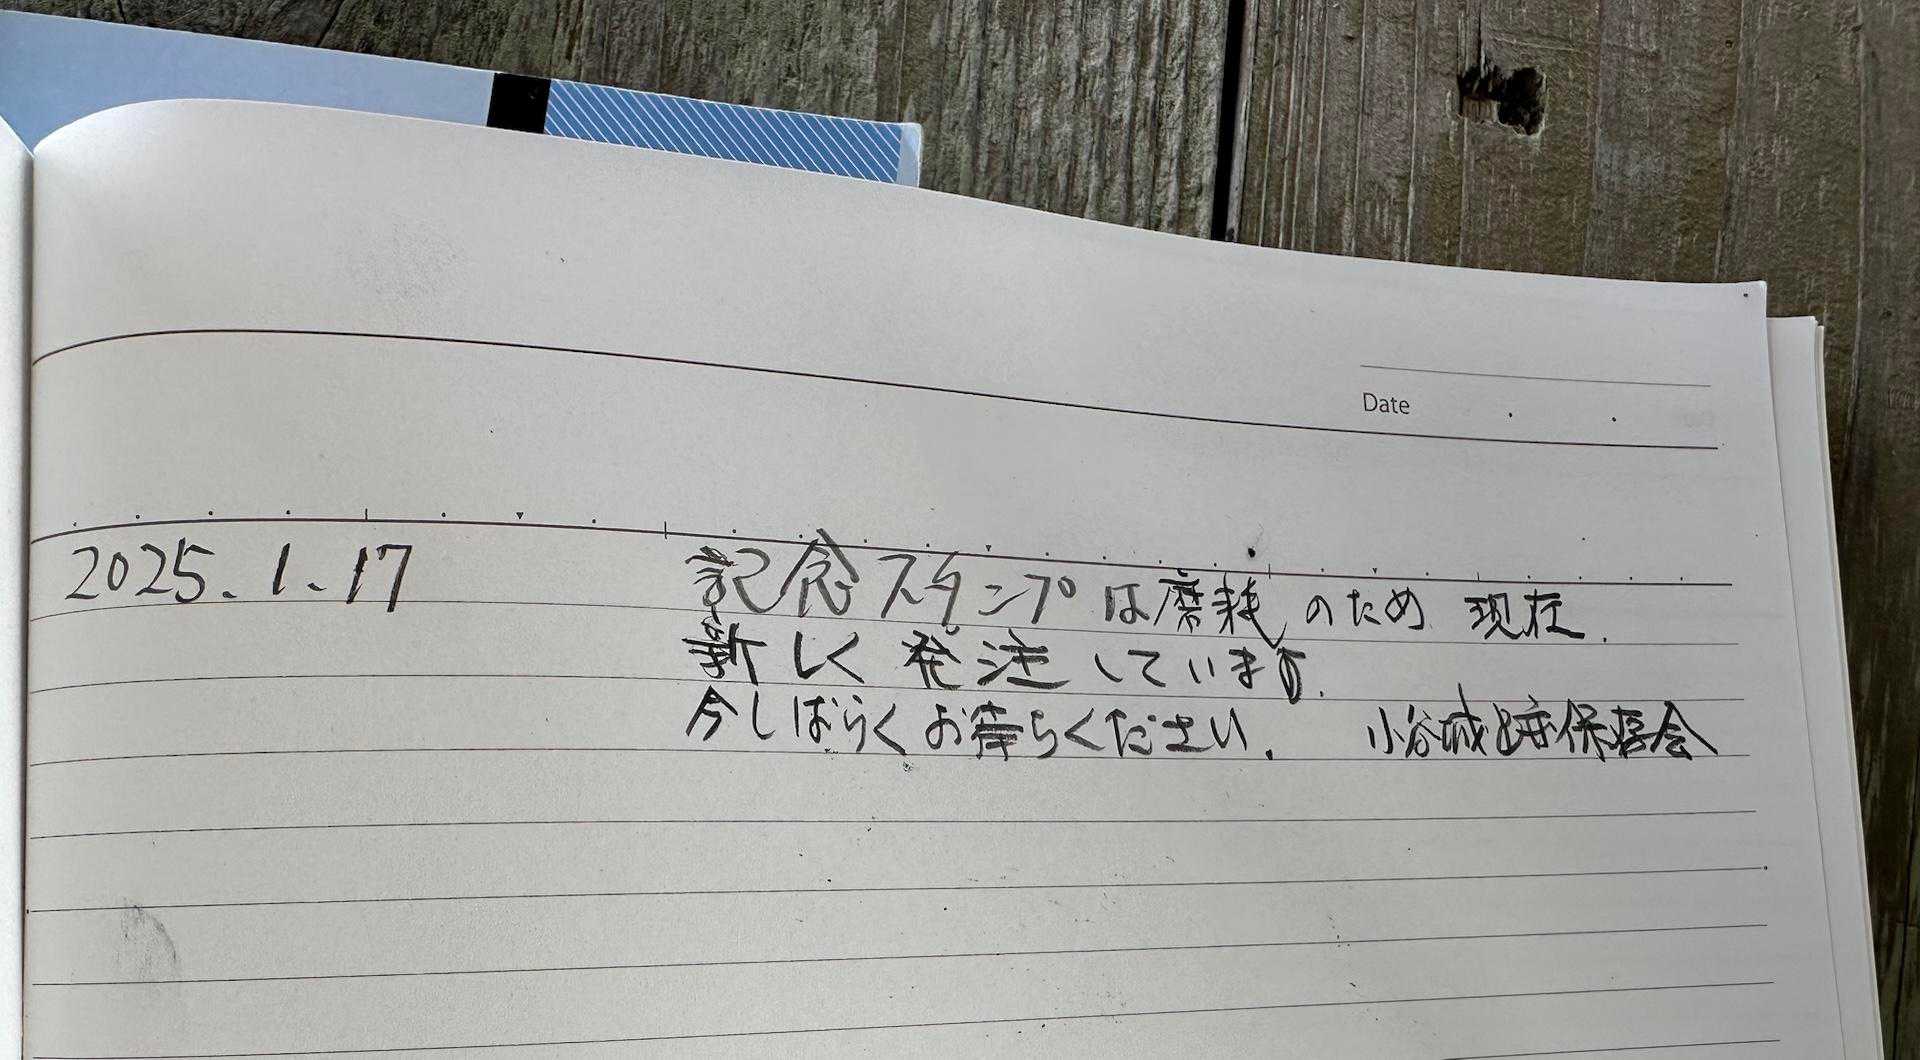 Date
2025.1.17 記念スタンプは磨耗のため 現在.
新しく発注しています.
今しばらくお待ちください. 小谷城跡保存会